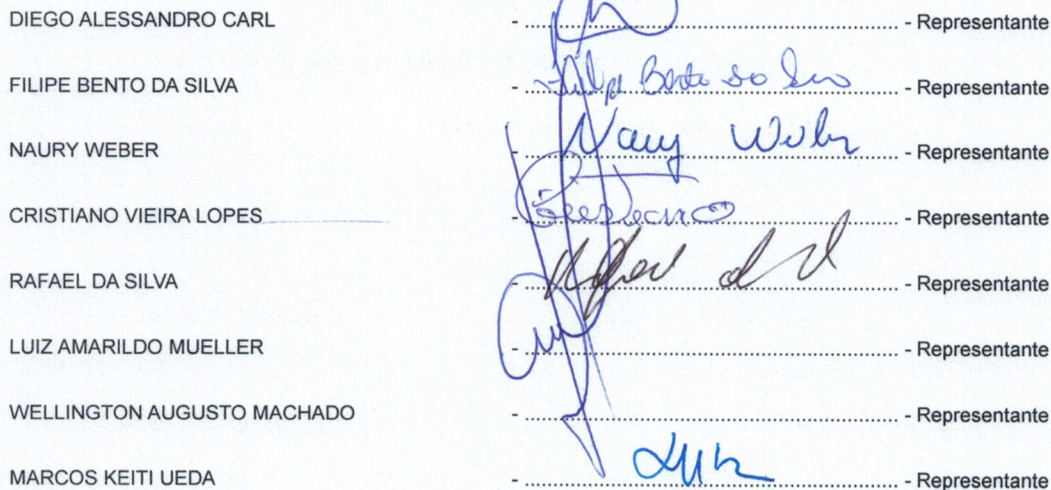 DIEGO ALESSANDRO CARL - ........ - Representante
FILIPE BENTO DA SILVA - Filipe Bento da Silva ........ - Representante
NAURY WEBER - Naury Weber ........ - Representante
CRISTIANO VIEIRA LOPES - Cristiano ........ - Representante
RAFAEL DA SILVA - Rafael d S ........ - Representante
LUIZ AMARILDO MUELLER - ........ - Representante
WELLINGTON AUGUSTO MACHADO - ........ - Representante
MARCOS KEITI UEDA - ........ - Representante